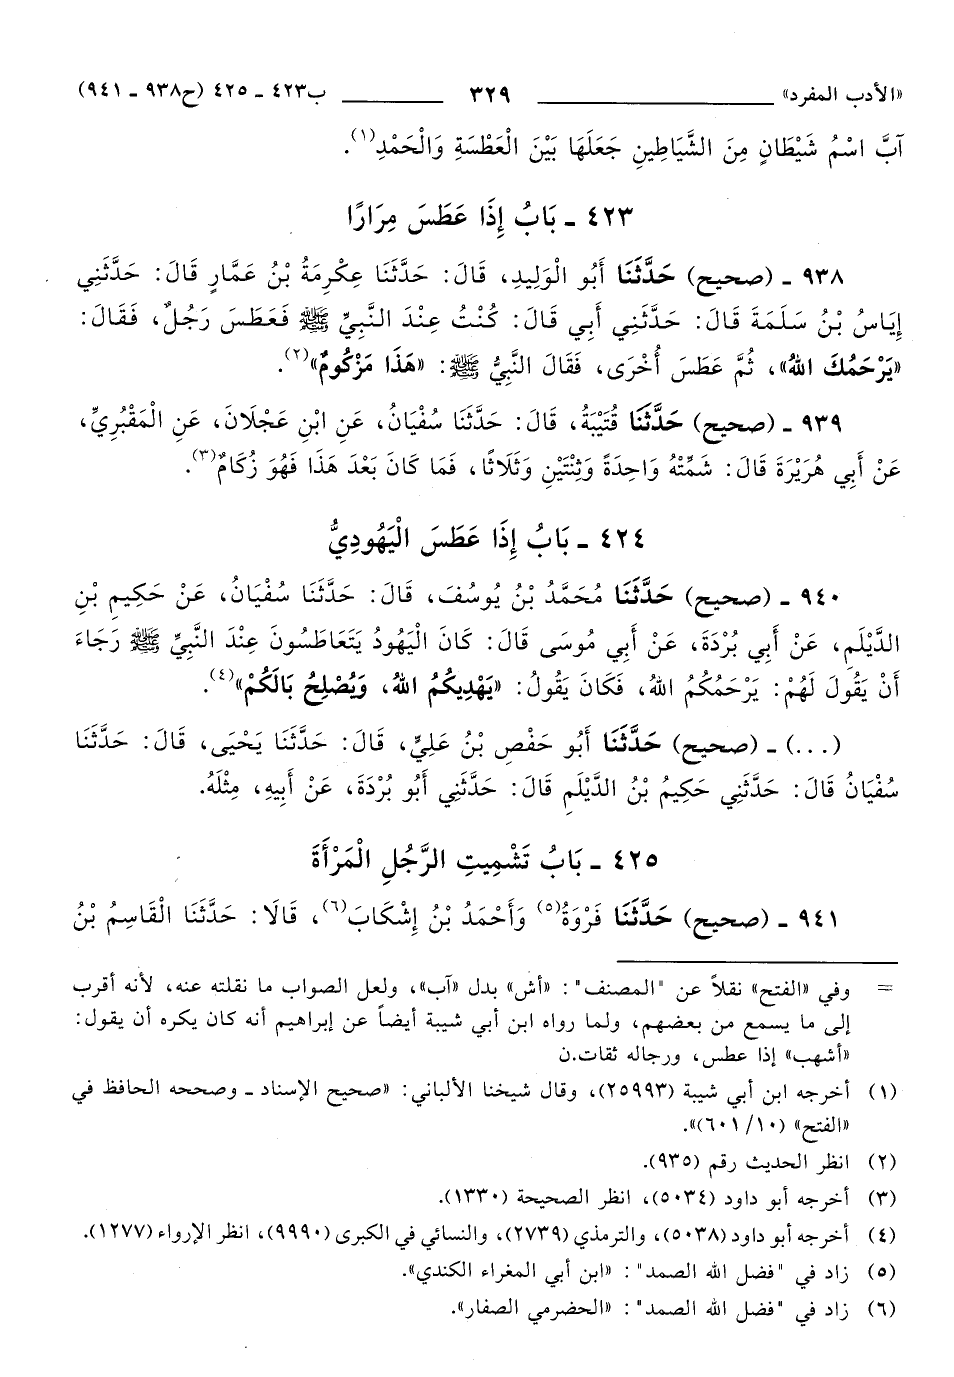 «الأدب المفرد» ٣٢٩ ب٤٢٣ - ٤٢٥ (ح٩٣٨ - ٩٤١)
آبَّ اسْمُ شَيْطَانٍ مِنَ الشَّيَاطِينِ جَعَلَهَا بَيْنَ الْعَطْسَةِ وَالْحَمْدِ(١).
٤٢٣ - بَابُ إِذَا عَطَسَ مِرَارًا
٩٣٨ - (صحيح) حَدَّثَنَا أَبُو الْوَلِيدِ، قَالَ: حَدَّثَنَا عِكْرِمَةُ بْنُ عَمَّارٍ قَالَ: حَدَّثَنِي
إِيَاسُ بْنُ سَلَمَةَ قَالَ: حَدَّثَنِي أَبِي قَالَ: كُنْتُ عِنْدَ النَّبِيِّ ﷺ فَعَطَسَ رَجُلٌ، فَقَالَ:
«يَرْحَمُكَ اللهُ»، ثُمَّ عَطَسَ أُخْرَى، فَقَالَ النَّبِيُّ ﷺ: «هَذَا مَزْكُومٌ»(٢).
٩٣٩ - (صحيح) حَدَّثَنَا قُتَيْبَةُ، قَالَ: حَدَّثَنَا سُفْيَانُ، عَنِ ابْنِ عَجْلَانَ، عَنِ الْمَقْبُرِيِّ،
عَنْ أَبِي هُرَيْرَةَ قَالَ: شَمِّتْهُ وَاحِدَةً وَثِنْتَيْنِ وَثَلَاثًا، فَمَا كَانَ بَعْدَ هَذَا فَهُوَ زُكَامٌ(٣).
٤٢٤ - بَابُ إِذَا عَطَسَ الْيَهُودِيُّ
٩٤٠ - (صحيح) حَدَّثَنَا مُحَمَّدُ بْنُ يُوسُفَ، قَالَ: حَدَّثَنَا سُفْيَانُ، عَنْ حَكِيمِ بْنِ
الدَّيْلَمِ، عَنْ أَبِي بُرْدَةَ، عَنْ أَبِي مُوسَى قَالَ: كَانَ الْيَهُودُ يَتَعَاطَسُونَ عِنْدَ النَّبِيِّ ﷺ رَجَاءَ
أَنْ يَقُولَ لَهُمْ: يَرْحَمُكُمُ اللهُ، فَكَانَ يَقُولُ: «يَهْدِيكُمُ اللهُ، وَيُصْلِحُ بَالَكُمْ»(٤).
(...) - (صحيح) حَدَّثَنَا أَبُو حَفْصِ بْنُ عَلِيٍّ، قَالَ: حَدَّثَنَا يَحْيَى، قَالَ: حَدَّثَنَا
سُفْيَانُ قَالَ: حَدَّثَنِي حَكِيمُ بْنُ الدَّيْلَمِ قَالَ: حَدَّثَنِي أَبُو بُرْدَةَ، عَنْ أَبِيهِ، مِثْلَهُ.
٤٢٥ - بَابُ تَشْمِيتِ الرَّجُلِ الْمَرْأَةَ
٩٤١ - (صحيح) حَدَّثَنَا فَرْوَةُ(٥) وَأَحْمَدُ بْنُ إِشْكَابَ(٦)، قَالَا: حَدَّثَنَا الْقَاسِمُ بْنُ
= وفي «الفتح» نقلاً عن "المصنف": «أش» بدل «آب»، ولعل الصواب ما نقلته عنه، لأنه أقرب
إلى ما يسمع من بعضهم، ولما رواه ابن أبي شيبة أيضاً عن إبراهيم أنه كان يكره أن يقول:
«أشهب» إذا عطس، ورجاله ثقات.ن
(١) أخرجه ابن أبي شيبة (٢٥٩٩٣)، وقال شيخنا الألباني: «صحيح الإسناد - وصححه الحافظ في
«الفتح» (٦٠١/١٠)».
(٢) انظر الحديث رقم (٩٣٥).
(٣) أخرجه أبو داود (٥٠٣٤)، انظر الصحيحة (١٣٣٠).
(٤) أخرجه أبو داود(٥٠٣٨)، والترمذي (٢٧٣٩)، والنسائي في الكبرى (٩٩٩٠)، انظر الإرواء (١٢٧٧).
(٥) زاد في "فضل الله الصمد": «ابن أبي المغراء الكندي».
(٦) زاد في "فضل الله الصمد": «الحضرمي الصفار».